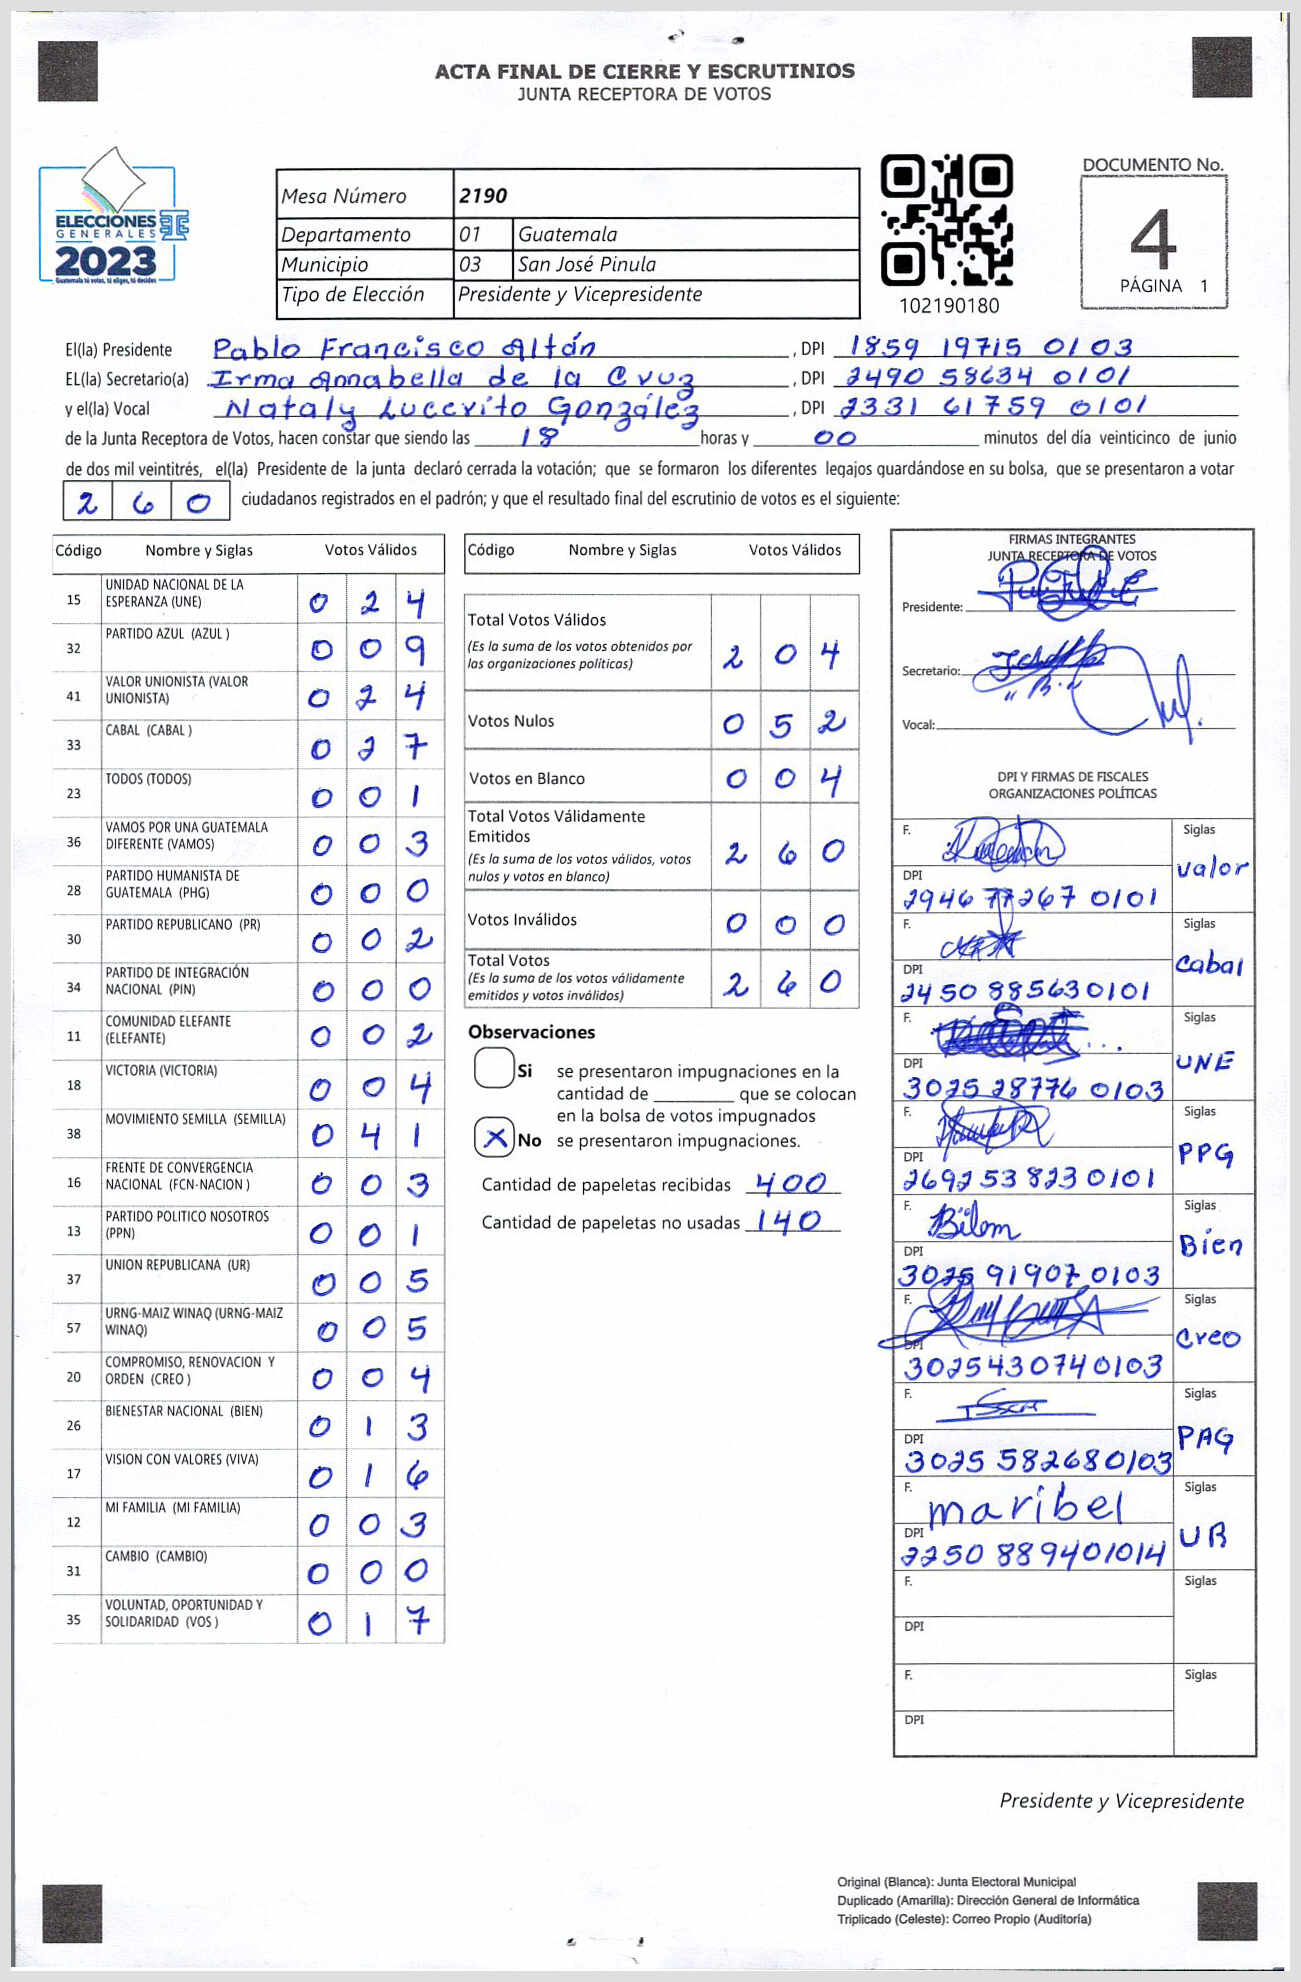 ACTA FINAL DE CIERRE Y ESCRUTINIOS
JUNTA RECEPTORA DE VOTOS
ELECCIONES
GENERALES
2023
Guatemala tú votas, tú eliges, tú decides
Mesa Número 2190
Departamento 01 Guatemala
Municipio 03 San José Pinula
Tipo de Elección Presidente y Vicepresidente
102190180
DOCUMENTO No.
4
PÁGINA 1
El(la) Presidente Pablo Francisco Altán , DPI 1859 19715 0103
EL(la) Secretario(a) Irma Annabella de la Cruz , DPI 2490 58634 0101
y el(la) Vocal Nataly Lucerito González , DPI 2331 61759 0101
de la Junta Receptora de Votos, hacen constar que siendo las 18 horas y 00 minutos del día veinticinco de junio
de dos mil veintitrés, el(la) Presidente de la junta declaró cerrada la votación; que se formaron los diferentes legajos guardándose en su bolsa, que se presentaron a votar
2 6 0 ciudadanos registrados en el padrón; y que el resultado final del escrutinio de votos es el siguiente:
Código Nombre y Siglas Votos Válidos
15 UNIDAD NACIONAL DE LA
ESPERANZA (UNE) 0 2 4
32 PARTIDO AZUL (AZUL ) 0 0 9
41 VALOR UNIONISTA (VALOR
UNIONISTA) 0 2 4
33 CABAL (CABAL ) 0 2 7
23 TODOS (TODOS) 0 0 1
36 VAMOS POR UNA GUATEMALA
DIFERENTE (VAMOS) 0 0 3
28 PARTIDO HUMANISTA DE
GUATEMALA (PHG) 0 0 0
30 PARTIDO REPUBLICANO (PR) 0 0 2
34 PARTIDO DE INTEGRACIÓN
NACIONAL (PIN) 0 0 0
11 COMUNIDAD ELEFANTE
(ELEFANTE) 0 0 2
18 VICTORIA (VICTORIA) 0 0 4
38 MOVIMIENTO SEMILLA (SEMILLA) 0 4 1
16 FRENTE DE CONVERGENCIA
NACIONAL (FCN-NACION ) 0 0 3
13 PARTIDO POLITICO NOSOTROS
(PPN) 0 0 1
37 UNION REPUBLICANA (UR) 0 0 5
57 URNG-MAIZ WINAQ (URNG-MAIZ
WINAQ) 0 0 5
20 COMPROMISO, RENOVACION Y
ORDEN (CREO ) 0 0 4
26 BIENESTAR NACIONAL (BIEN) 0 1 3
17 VISION CON VALORES (VIVA) 0 1 6
12 MI FAMILIA (MI FAMILIA) 0 0 3
31 CAMBIO (CAMBIO) 0 0 0
35 VOLUNTAD, OPORTUNIDAD Y
SOLIDARIDAD (VOS ) 0 1 7
Código Nombre y Siglas Votos Válidos
Total Votos Válidos
(Es la suma de los votos obtenidos por
las organizaciones políticas) 2 0 4
Votos Nulos 0 5 2
Votos en Blanco 0 0 4
Total Votos Válidamente
Emitidos
(Es la suma de los votos válidos, votos
nulos y votos en blanco) 2 6 0
Votos Inválidos 0 0 0
Total Votos
(Es la suma de los votos válidamente
emitidos y votos inválidos) 2 6 0
Observaciones
Si se presentaron impugnaciones en la
cantidad de ________ que se colocan
en la bolsa de votos impugnados
X No se presentaron impugnaciones.
Cantidad de papeletas recibidas 400
Cantidad de papeletas no usadas 140
FIRMAS INTEGRANTES
JUNTA RECEPTORA DE VOTOS
Presidente:
Secretario:
Vocal:
DPI Y FIRMAS DE FISCALES
ORGANIZACIONES POLÍTICAS
F. Siglas
valor
DPI
2946 77267 0101
F. Siglas
cabal
DPI
2450 885630101
F. Siglas
UNE
DPI
3025 28776 0103
F. Siglas
PPG
DPI
2692 53 823 0101
F. Siglas
Bien
DPI
3025 91907 0103
F. Siglas
creo
DPI
3025430740103
F. Siglas
PAG
DPI
3025 582680103
F. maribel Siglas
UR
DPI
2250 889401014
F. Siglas
DPI
F. Siglas
DPI
Presidente y Vicepresidente
Original (Blanca): Junta Electoral Municipal
Duplicado (Amarilla): Dirección General de Informática
Triplicado (Celeste): Correo Propio (Auditoría)